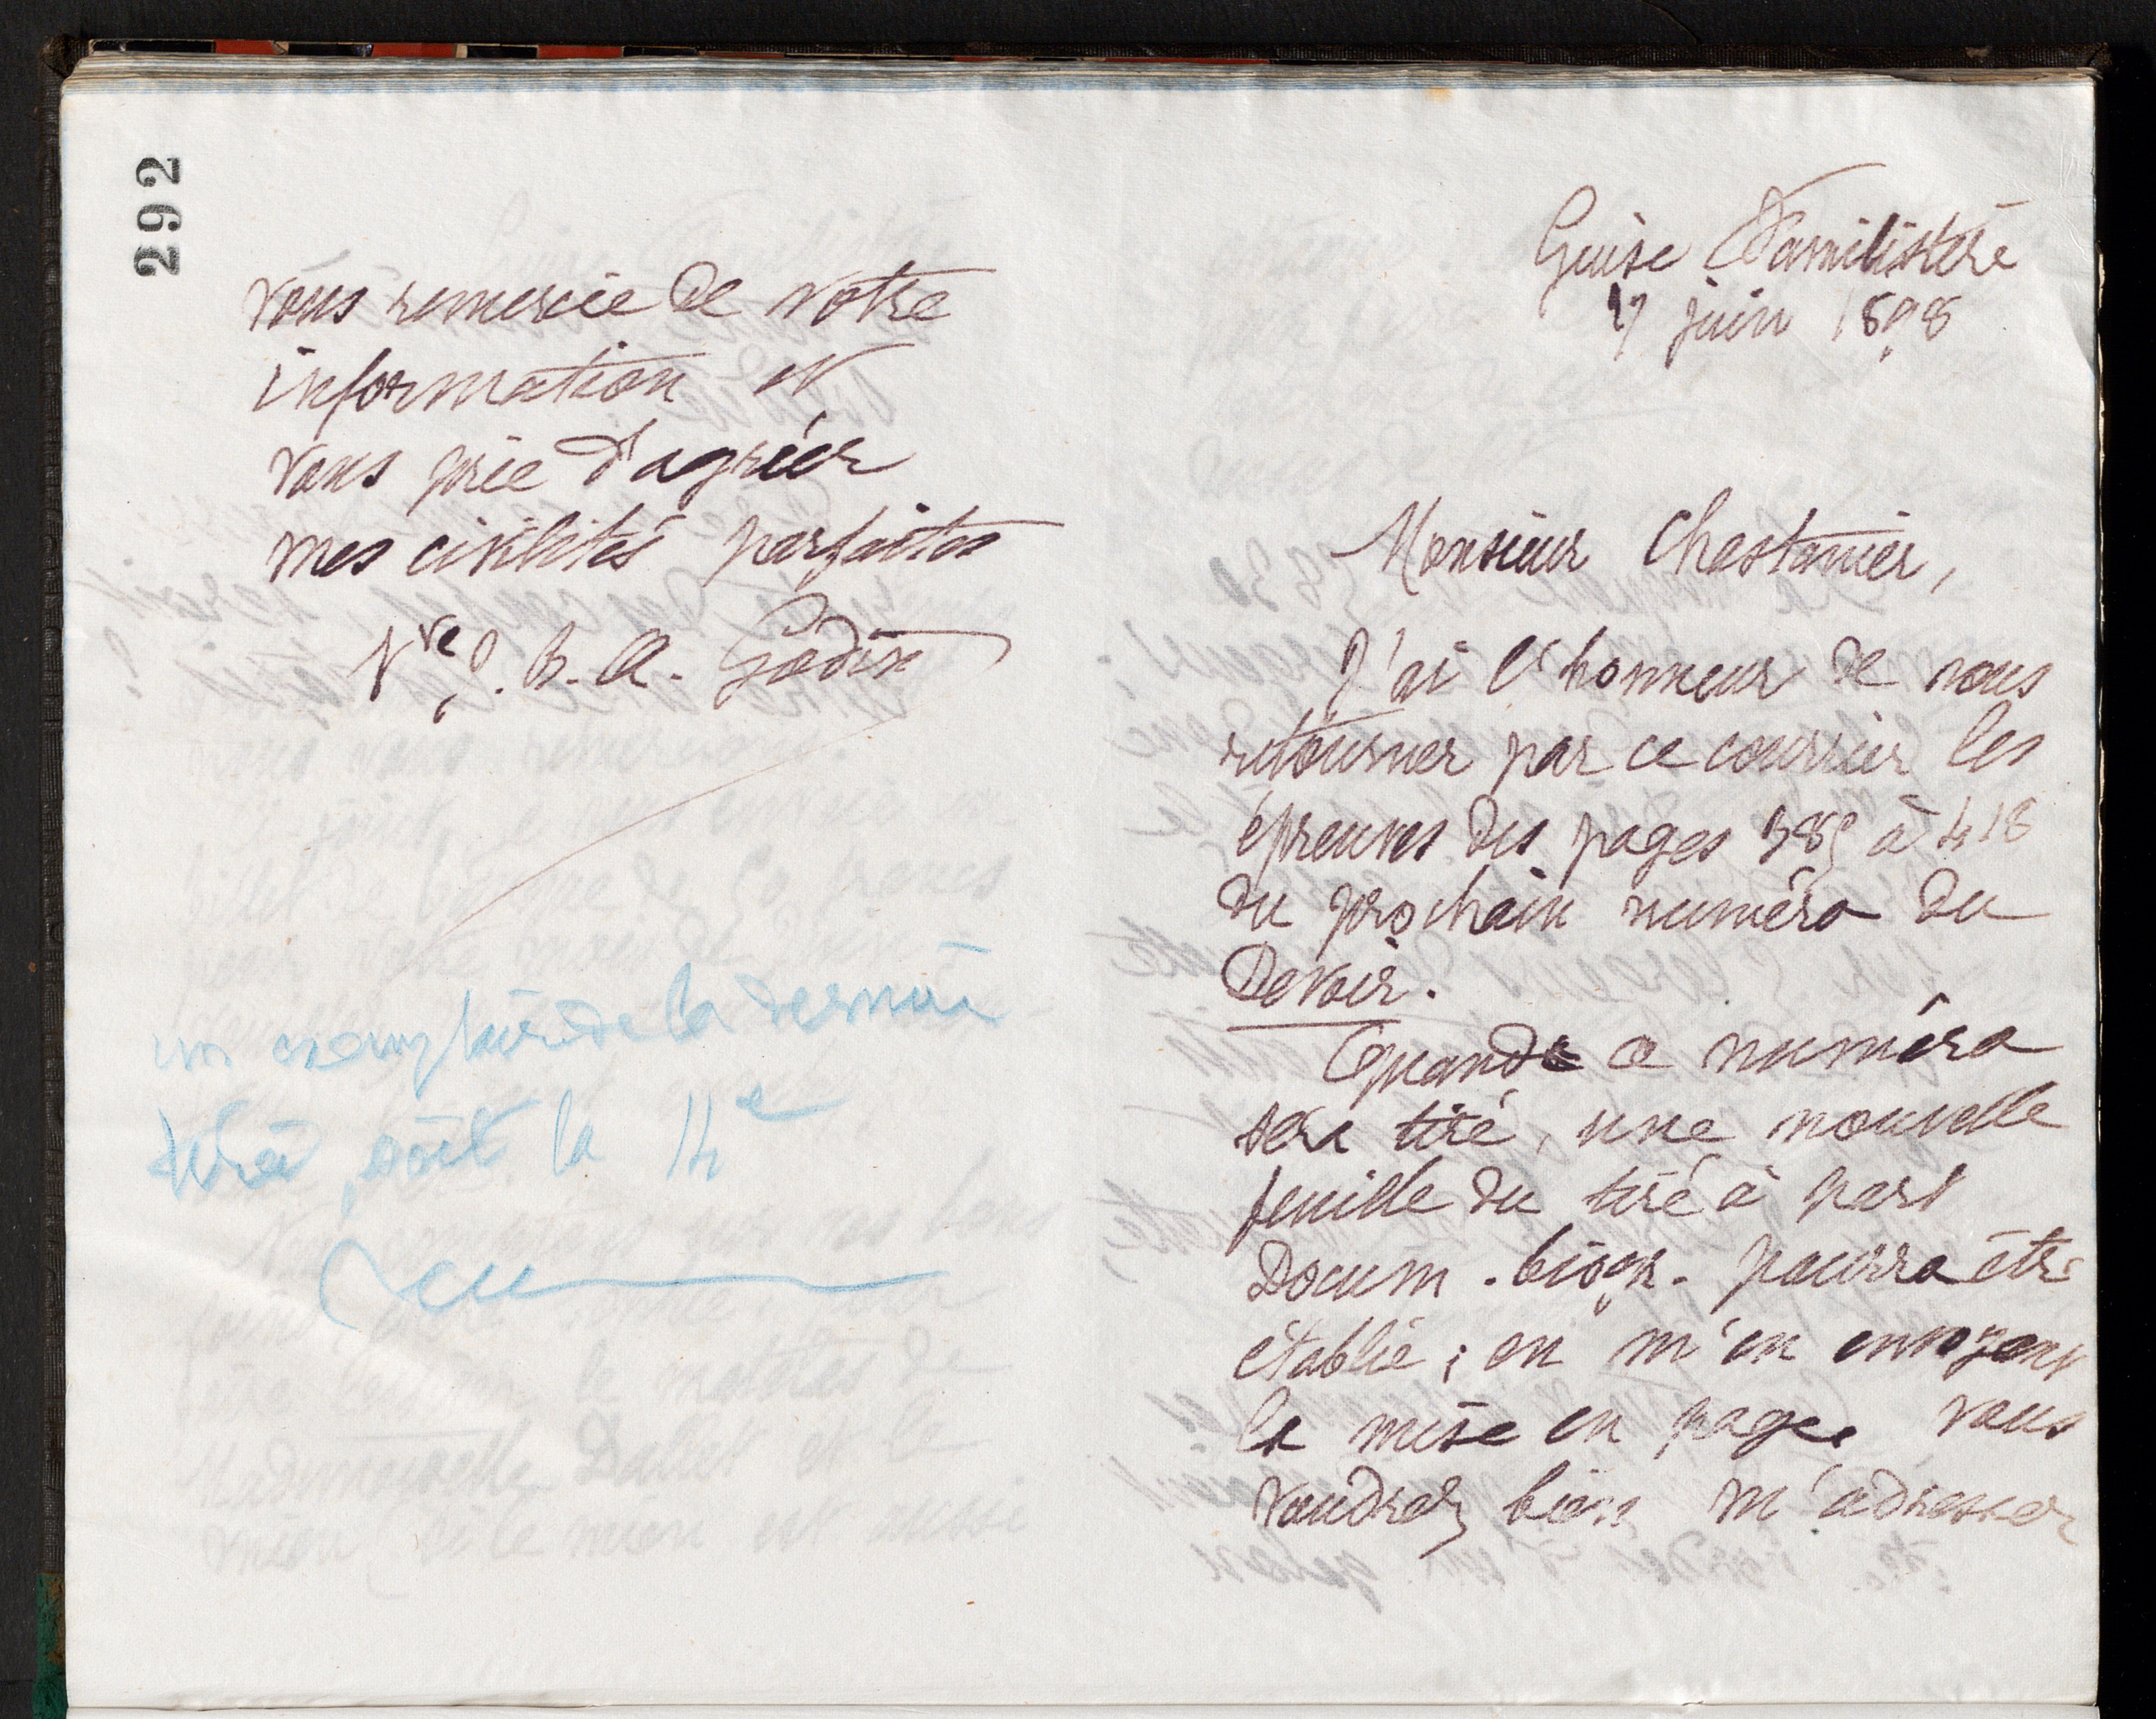 292
vous remercie de votre
information et
vous prie d'agréer
mes civilités parfaites
Vve J. B. A. Godin
un exemplaire de la dernière
tirée, soit la 14e
Guise Familistère
17 juin 1898
Monsieur Chastanier,
J'ai l'honneur de vous
retourner par ce courrier les
épreuves des pages 385 à 418
du prochain numéro du
Devoir.
Quand ce numéro
sera tiré, une nouvelle
feuille du tiré à part
Docum. biogr. pourra être
établie ; en m'en envoyant
la mise en page, vous
voudrez bien m'adresser